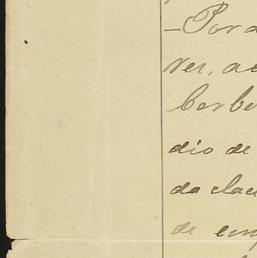 -Por a
ver, a
Cerbe
dio de
da clau
de emp